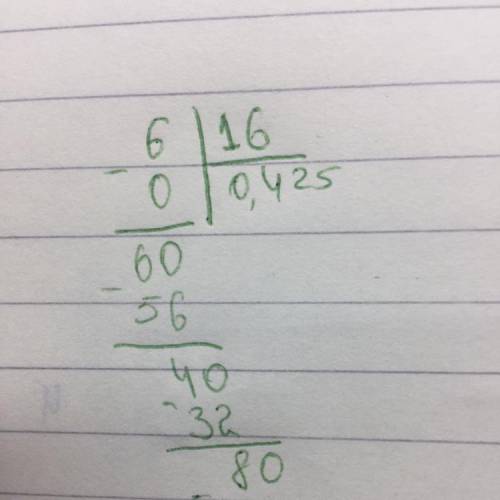 6 | 16
- 0 | 0,425
60
- 56
40
- 32
80